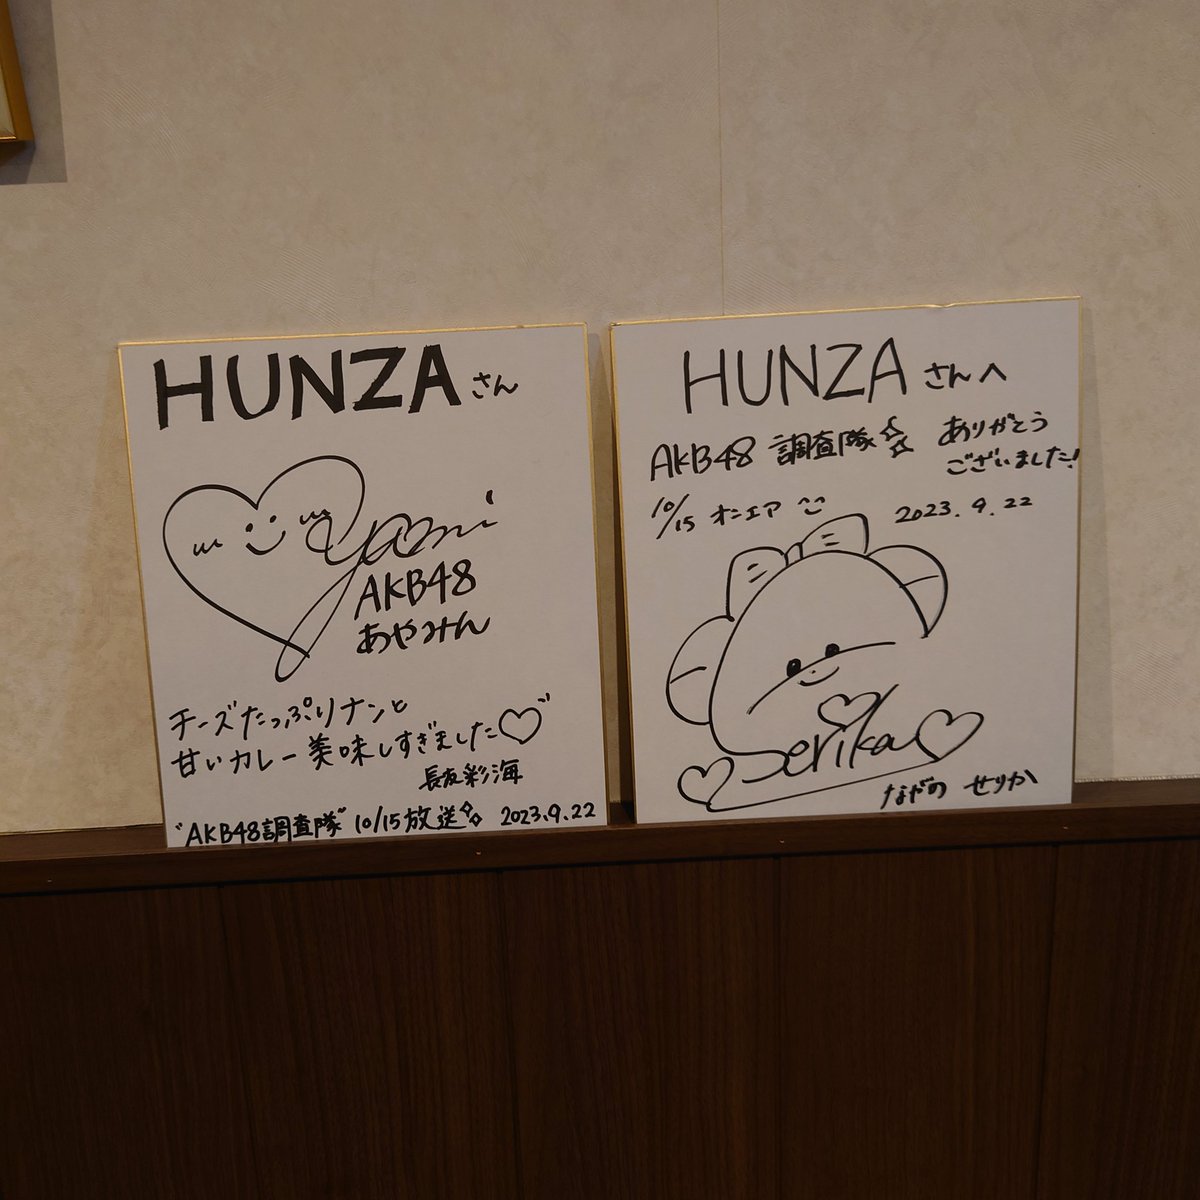 HUNZAさん
Ayami
AKB48
あやみん
チーズたっぷりナンと
甘いカレー美味しすぎました♡
長友彩海
"AKB48調査隊" 10/15放送 2023.9.22
HUNZAさんへ
AKB48 調査隊 ありがとう
ございました!
10/15 オンエア
2023.9.22
Serika
ながの せりか